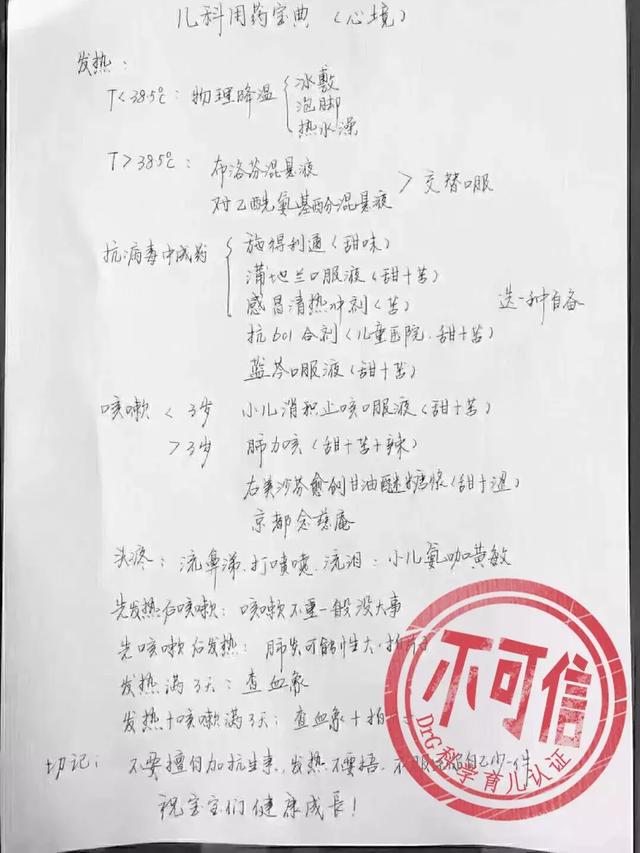 儿科用药宝典（心境）
发热：
T<38.5℃：物理降温 冰敷
泡脚
热水澡
T>38.5℃：布洛芬混悬液
对乙酰氨基酚混悬液 > 交替口服
抗病毒中成药 施得利通（甜味）
蒲地兰口服液（甜+苦）
感冒清热冲剂（苦） 选一种自备
抗601合剂（儿童医院.甜+苦）
蓝芩口服液（甜+苦）
咳嗽 <3岁 小儿消积止咳口服液（甜+苦）
>3岁 肺力咳（甜+苦+辣）
右美沙芬愈创甘油醚糖浆（甜+涩）
京都念慈庵
头疼：流鼻涕.打喷嚏.流泪：小儿氨咖黄敏
先发热后咳嗽：咳嗽不重一般没大事
先咳嗽后发热：肺炎可能性大.拍
发热满3天：查血象
发热+咳嗽满3天：查血象+拍
切记：不要擅自加抗生素，发热不要捂.
祝宝宝们健康成长！
不可信
DrG科学育儿认证